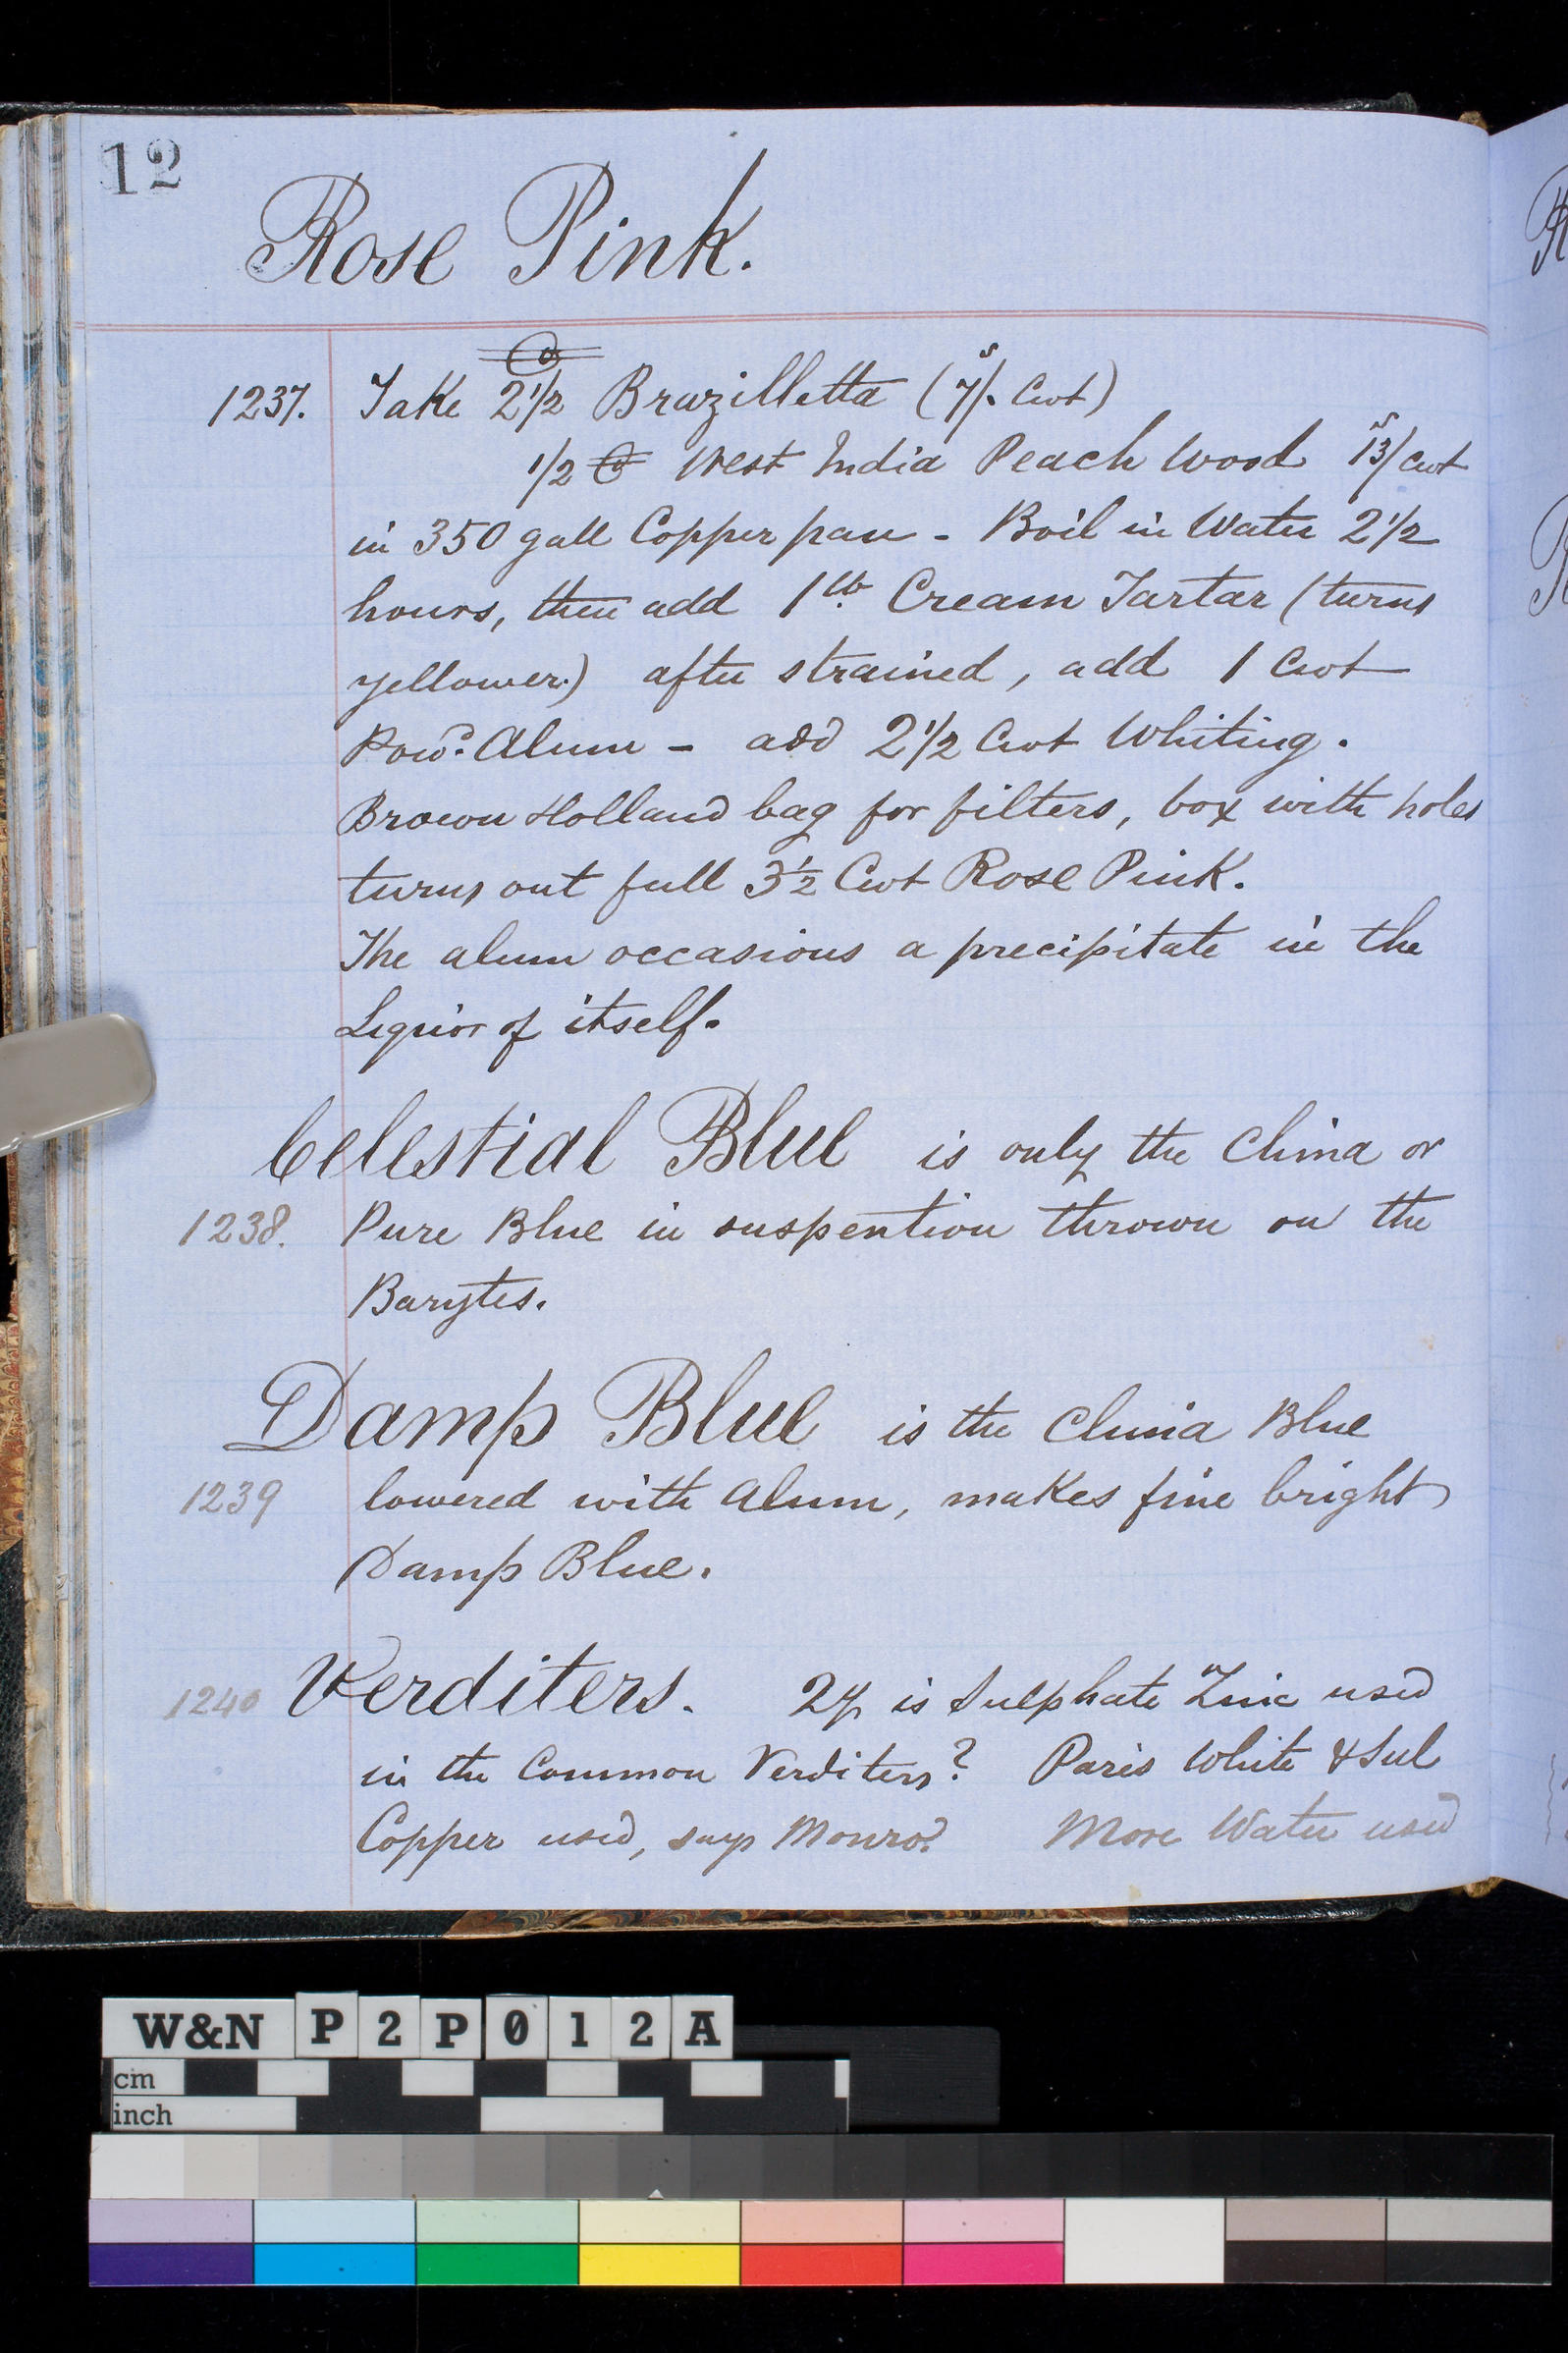 12
Rose Pink.
1237. Take 2½ C Brazilletta (7/. Cwt)
½ C West India Peach Wood 13/ Cwt
in 350 gall Copper pan - Boil in Water 2½
hours, then add 1 lb. Cream Tartar (turns
yellower.) after strained, add 1 Cwt
Powd. Alum - add 2½ Cwt Whiting.
Brown Holland bag for filters, box with holes
turns out full 3½ Cwt Rose Pink.
The alum occasions a precipitate in the
Liquor of itself.
Celestial Blue is only the China or
1238. Pure Blue in suspention thrown on the
Barytes.
Damp Blue is the China Blue
1239 lowered with Alum, makes fine bright
Damp Blue.
1240 Verditers. Qy is Sulphate Zinc used
in the Common Verditers? Paris White & Sul
Copper used, says Monro? More Water used
W&N P2P012A
cm
inch